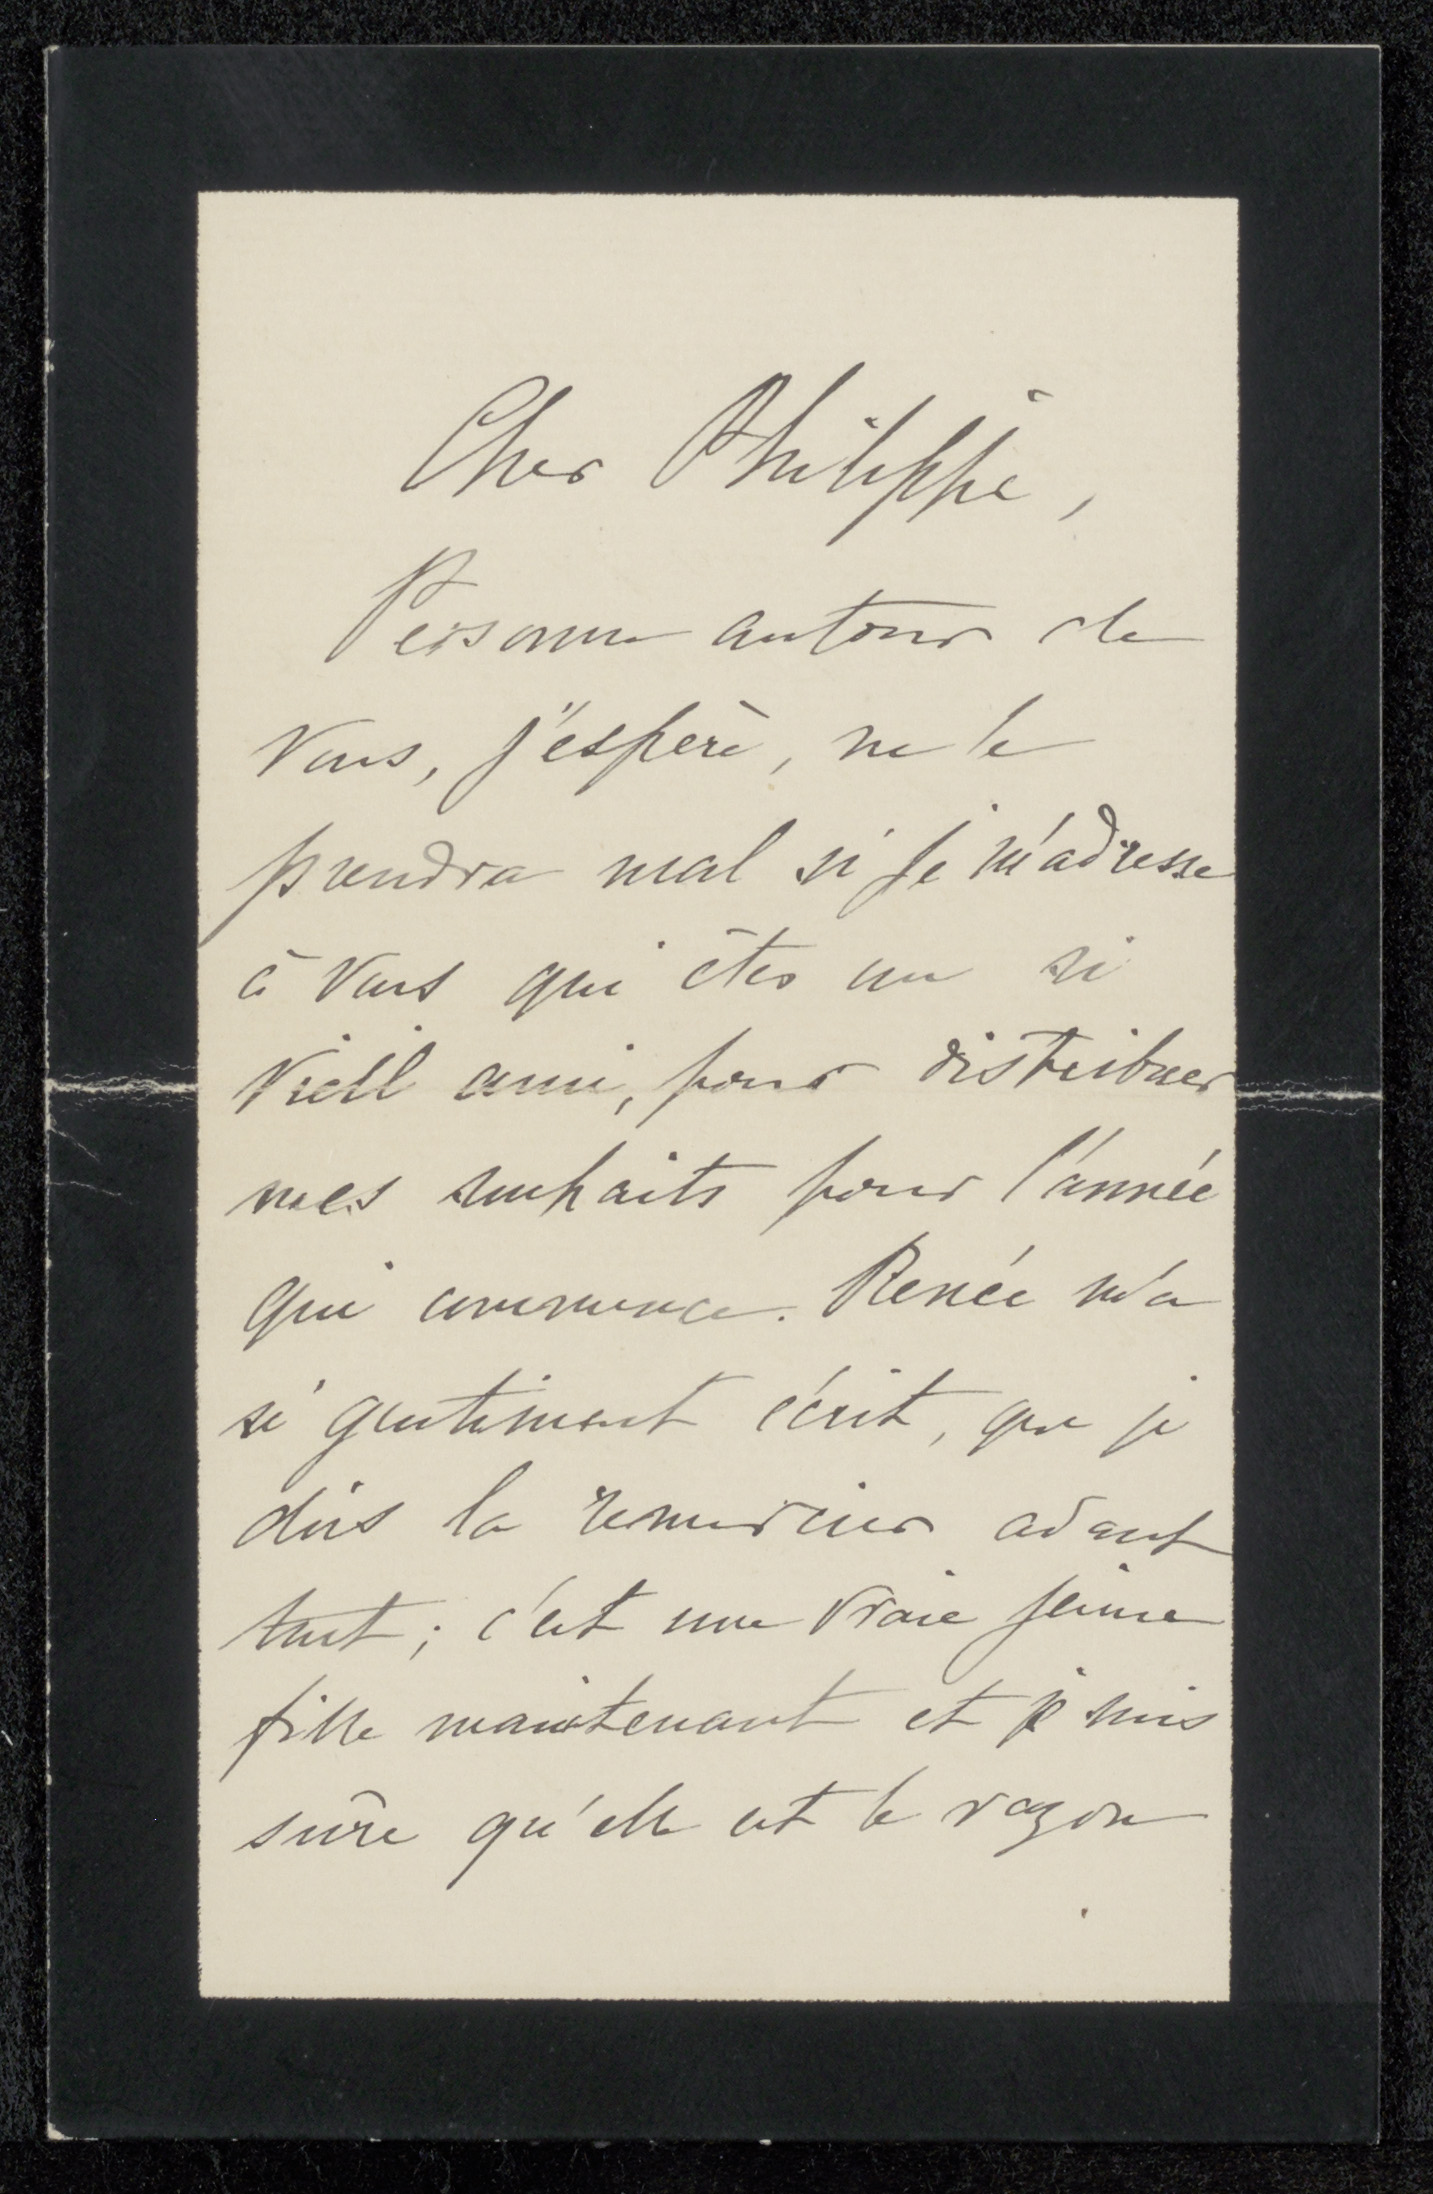 Cher Philippe,
Personne autour de
vous, j'espère, ne le
prendra mal si je m'adresse
à vous qui êtes un si
vieil ami, pour distribuer
mes souhaits pour l'année
qui commence. Renée m'a
si gentiment écrit, que je
dois la remercier avant
tout ; c'est une vraie jeune
fille maintenant et je suis
sûre qu'elle est le rayon